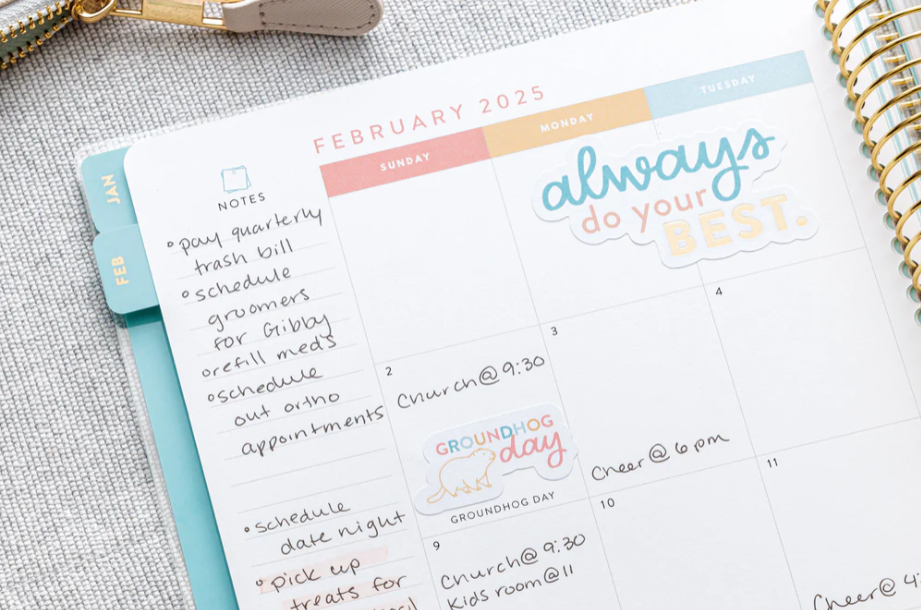 FEBRUARY 2025
SUNDAY
MONDAY
TUESDAY
JAN
FEB
NOTES
pay quarterly
trash bill
schedule
groomers
for Gibby
refill med's
schedule
out ortho
appointments
schedule
date night
pick up
treats for
always
do your
BEST.
2
Church@ 9:30
GROUNDHOG
day
GROUNDHOG DAY
3
Cheer@ 6pm
4
9
Church@ 9:30
Kids room@11
10
11
Cheer@